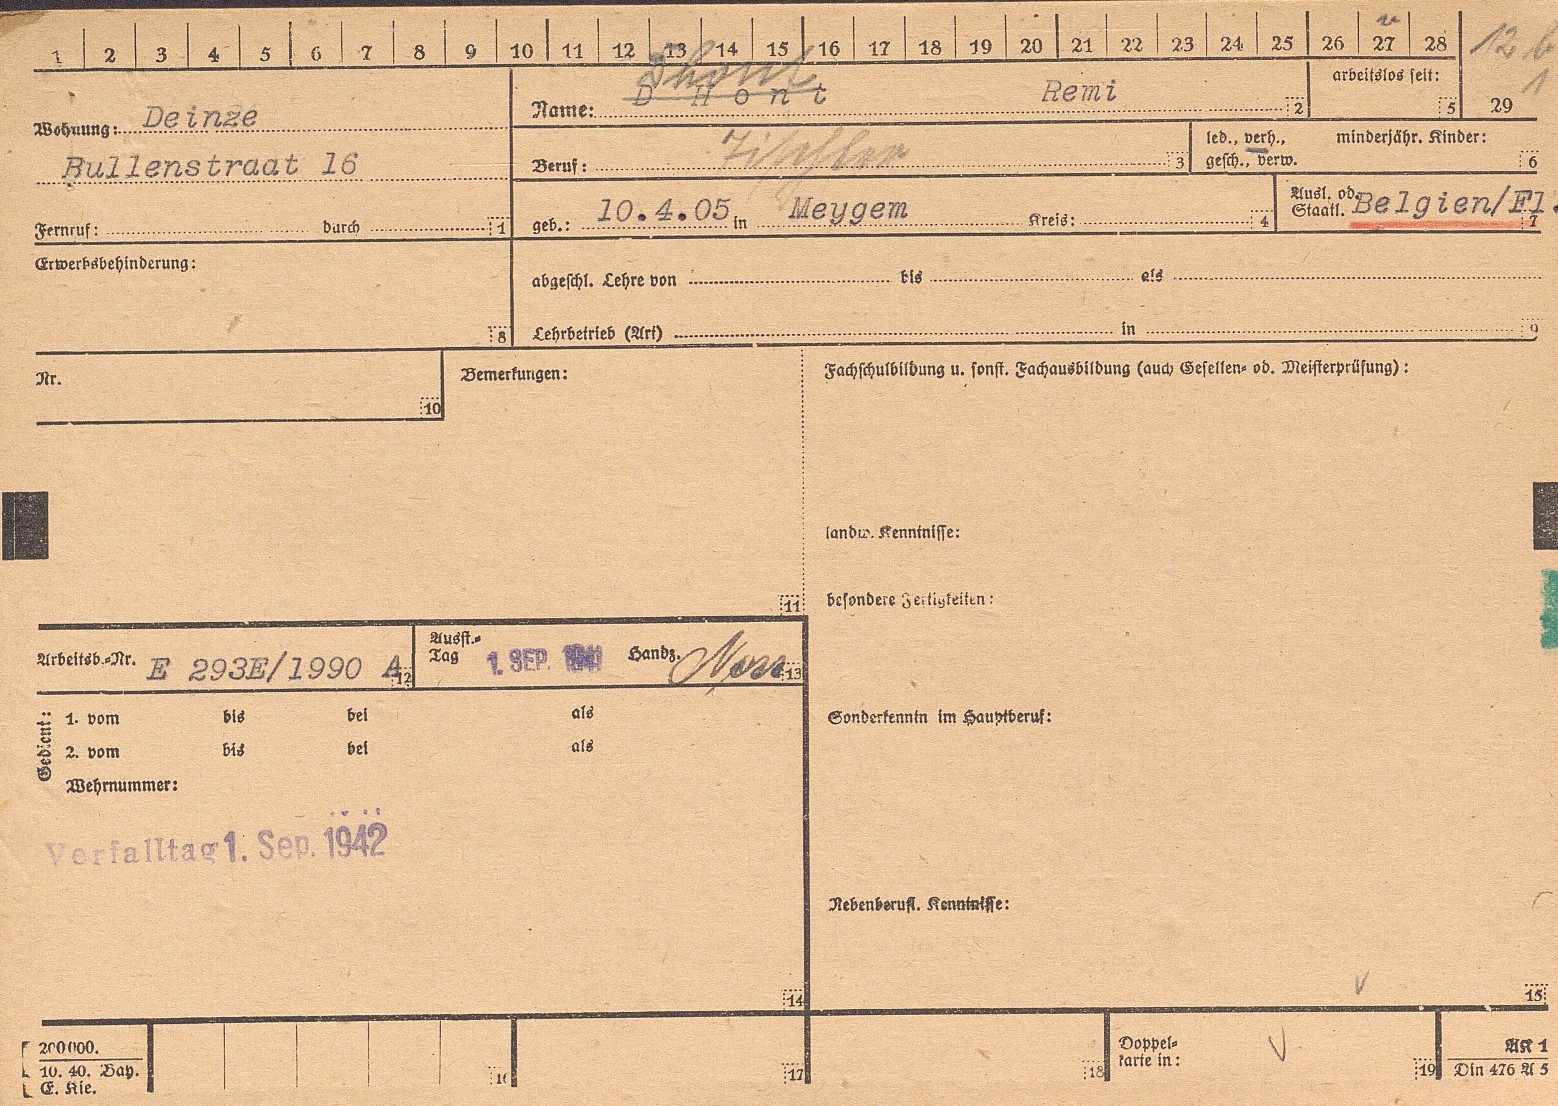 1 2 3 4 5 6 7 8 9 10 11 12 13 14 15 16 17 18 19 20 21 22 23 24 25 26 27 28
12 b
1
29
Wohnung: Deinze
Bullenstraat 16
Fernruf: durch 1
Dhont
Name: D Hont Remi 2
arbeitslos seit: 5
Beruf: Tischler 3
led., verh.,
gesch., verw.
minderjähr. Kinder: 6
geb.: 10.4.05 in Meygem Kreis: 4
Ausl. od.
Staatl. Belgien/Fl. 7
Erwerbsbehinderung: 8
abgeschl. Lehre von bis als
Lehrbetrieb (Art) in 9
Nr. 10
Bemerkungen: 11
Fachschulbildung u. sonst. Fachausbildung (auch Gesellen- od. Meisterprüfung):
landw. Kenntnisse:
besondere Fertigkeiten:
Sonderkenntn im Hauptberuf:
Nebenberufl. Kenntnisse:
15
Arbeitsb.-Nr. E 293E/1990 A 12
Ausst.-
Tag 1. SEP. 1941 Handz. 13
Gedient:
1. vom bis bei als
2. vom bis bei als
Wehrnummer:
Verfalltag 1. Sep. 1942
14
200000.
10. 40. Bay.
E. Kie.
16
17
18
Doppel-
karte in: 19
AK 1
Din 476 A 5